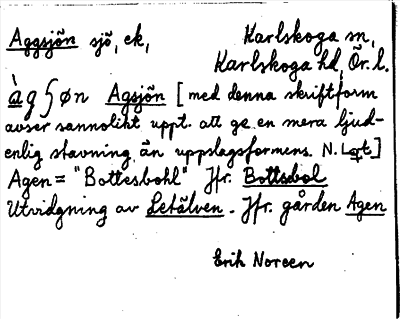 Aggsjön sjö, ek, Karlskoga sn,
Karlskoga hd, Ör. l.
àgʃøn Agsjön [med denna skriftform
avser sannolikt uppt. att ge en mera ljud-
enlig stavning än uppslagsformens N. Lgt.]
Agen = "Bottesbohl" Jfr. Bottsbol
Utvidgning av Letälven. Jfr. gården Agen
Erik Noreen